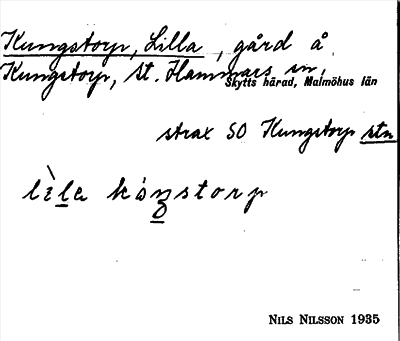 Kungstorp, Lilla, gård å
Kungstorp, St. Hammars sn,
Skytts härad, Malmöhus län
strax SO Kungstorp stn
lìla káŋstorp
Nils Nilsson 1935